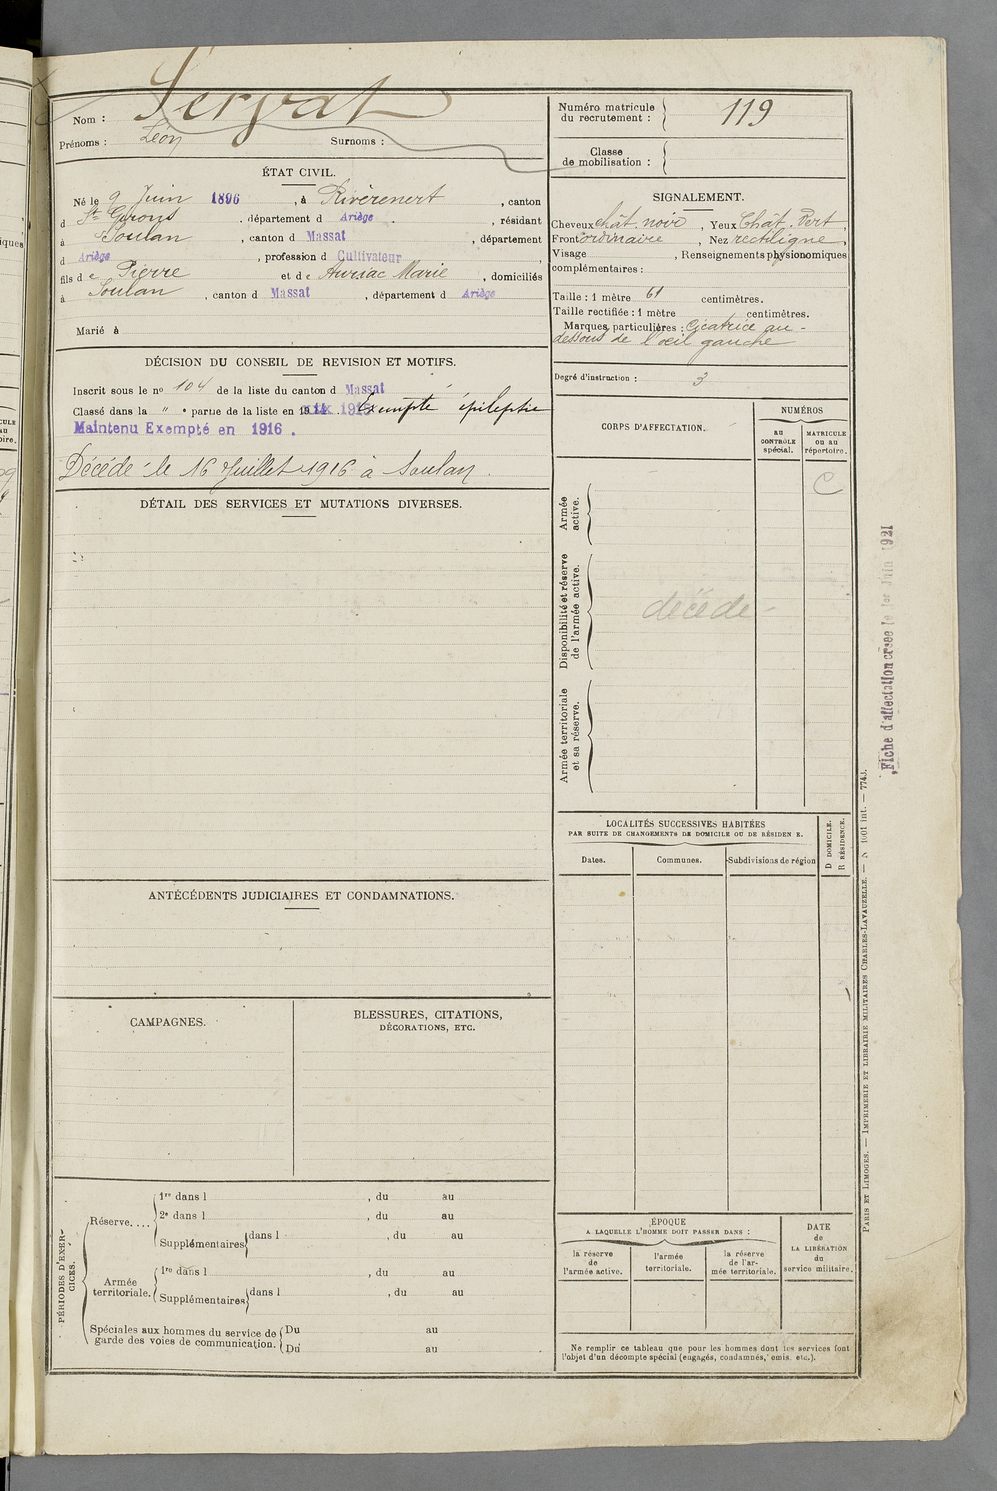 Nom : Servat
Prénoms : Léon Surnoms :
Numéro matricule du recrutement : 119
Classe de mobilisation :
ÉTAT CIVIL.
Né le 9 Juin 1896, à Rivèrenert, canton
d St Girons, département d Ariège, résidant
à Soulan, canton d Massat, département
d Ariège, profession d Cultivateur
fils de Pierre et de Auriac Marie, domiciliés
à Soulan, canton d Massat, département d Ariège
Marié à
SIGNALEMENT.
Cheveux chât. noir, Yeux Chât. Vert,
Front ordinaire, Nez rectiligne,
Visage , Renseignements physionomiques
complémentaires :
Taille : 1 mètre 61 centimètres.
Taille rectifiée : 1 mètre centimètres.
Marques particulières : Cicatrice au-
dessous de l'œil gauche
Degré d'instruction : 3
DÉCISION DU CONSEIL DE REVISION ET MOTIFS.
Inscrit sous le no 104 de la liste du canton d Massat
Classé dans la " e partie de la liste en 1915 Exempté épilepsie
Maintenu Exempté en 1916.
Décédé le 16 Juillet 1916 à Soulan.
DÉTAIL DES SERVICES ET MUTATIONS DIVERSES.
CORPS D'AFFECTATION.
NUMÉROS
au CONTRÔLE spécial.
MATRICULE ou au répertoire.
C
Armée active.
Disponibilité et réserve de l'armée active.
décédé
Armée territoriale et sa réserve.
Fiche d'affectation créée le 1er Juin 1921
LOCALITÉS SUCCESSIVES HABITÉES
PAR SUITE DE CHANGEMENTS DE DOMICILE OU DE RÉSIDEN E.
Dates.
Communes.
Subdivisions de région
D DOMICILE.
R RÉSIDENCE.
ANTÉCÉDENTS JUDICIAIRES ET CONDAMNATIONS.
CAMPAGNES.
BLESSURES, CITATIONS,
DÉCORATIONS, ETC.
PÉRIODES D'EXER-
CICES.
Réserve....
1re dans l , du au
2e dans l , du au
Supplémentaires dans l , du au
Armée territoriale.
1re dans l , du au
Supplémentaires dans l , du au
Spéciales aux hommes du service de
garde des voies de communication.
Du au
Du au
ÉPOQUE
A LAQUELLE L'HOMME DOIT PASSER DANS :
la réserve de l'armée active.
l'armée territoriale.
la réserve de l'ar-
mée territoriale.
DATE
de
LA LIBÉRATION
du
service militaire.
Ne remplir ce tableau que pour les hommes dont les services font
l'objet d'un décompte spécial (engagés, condamnés, omis, etc.).
PARIS ET LIMOGES. — IMPRIMERIE ET LIBRAIRIE MILITAIRES CHARLES-LAVAUZELLE. — N 1001 int. — 7743.